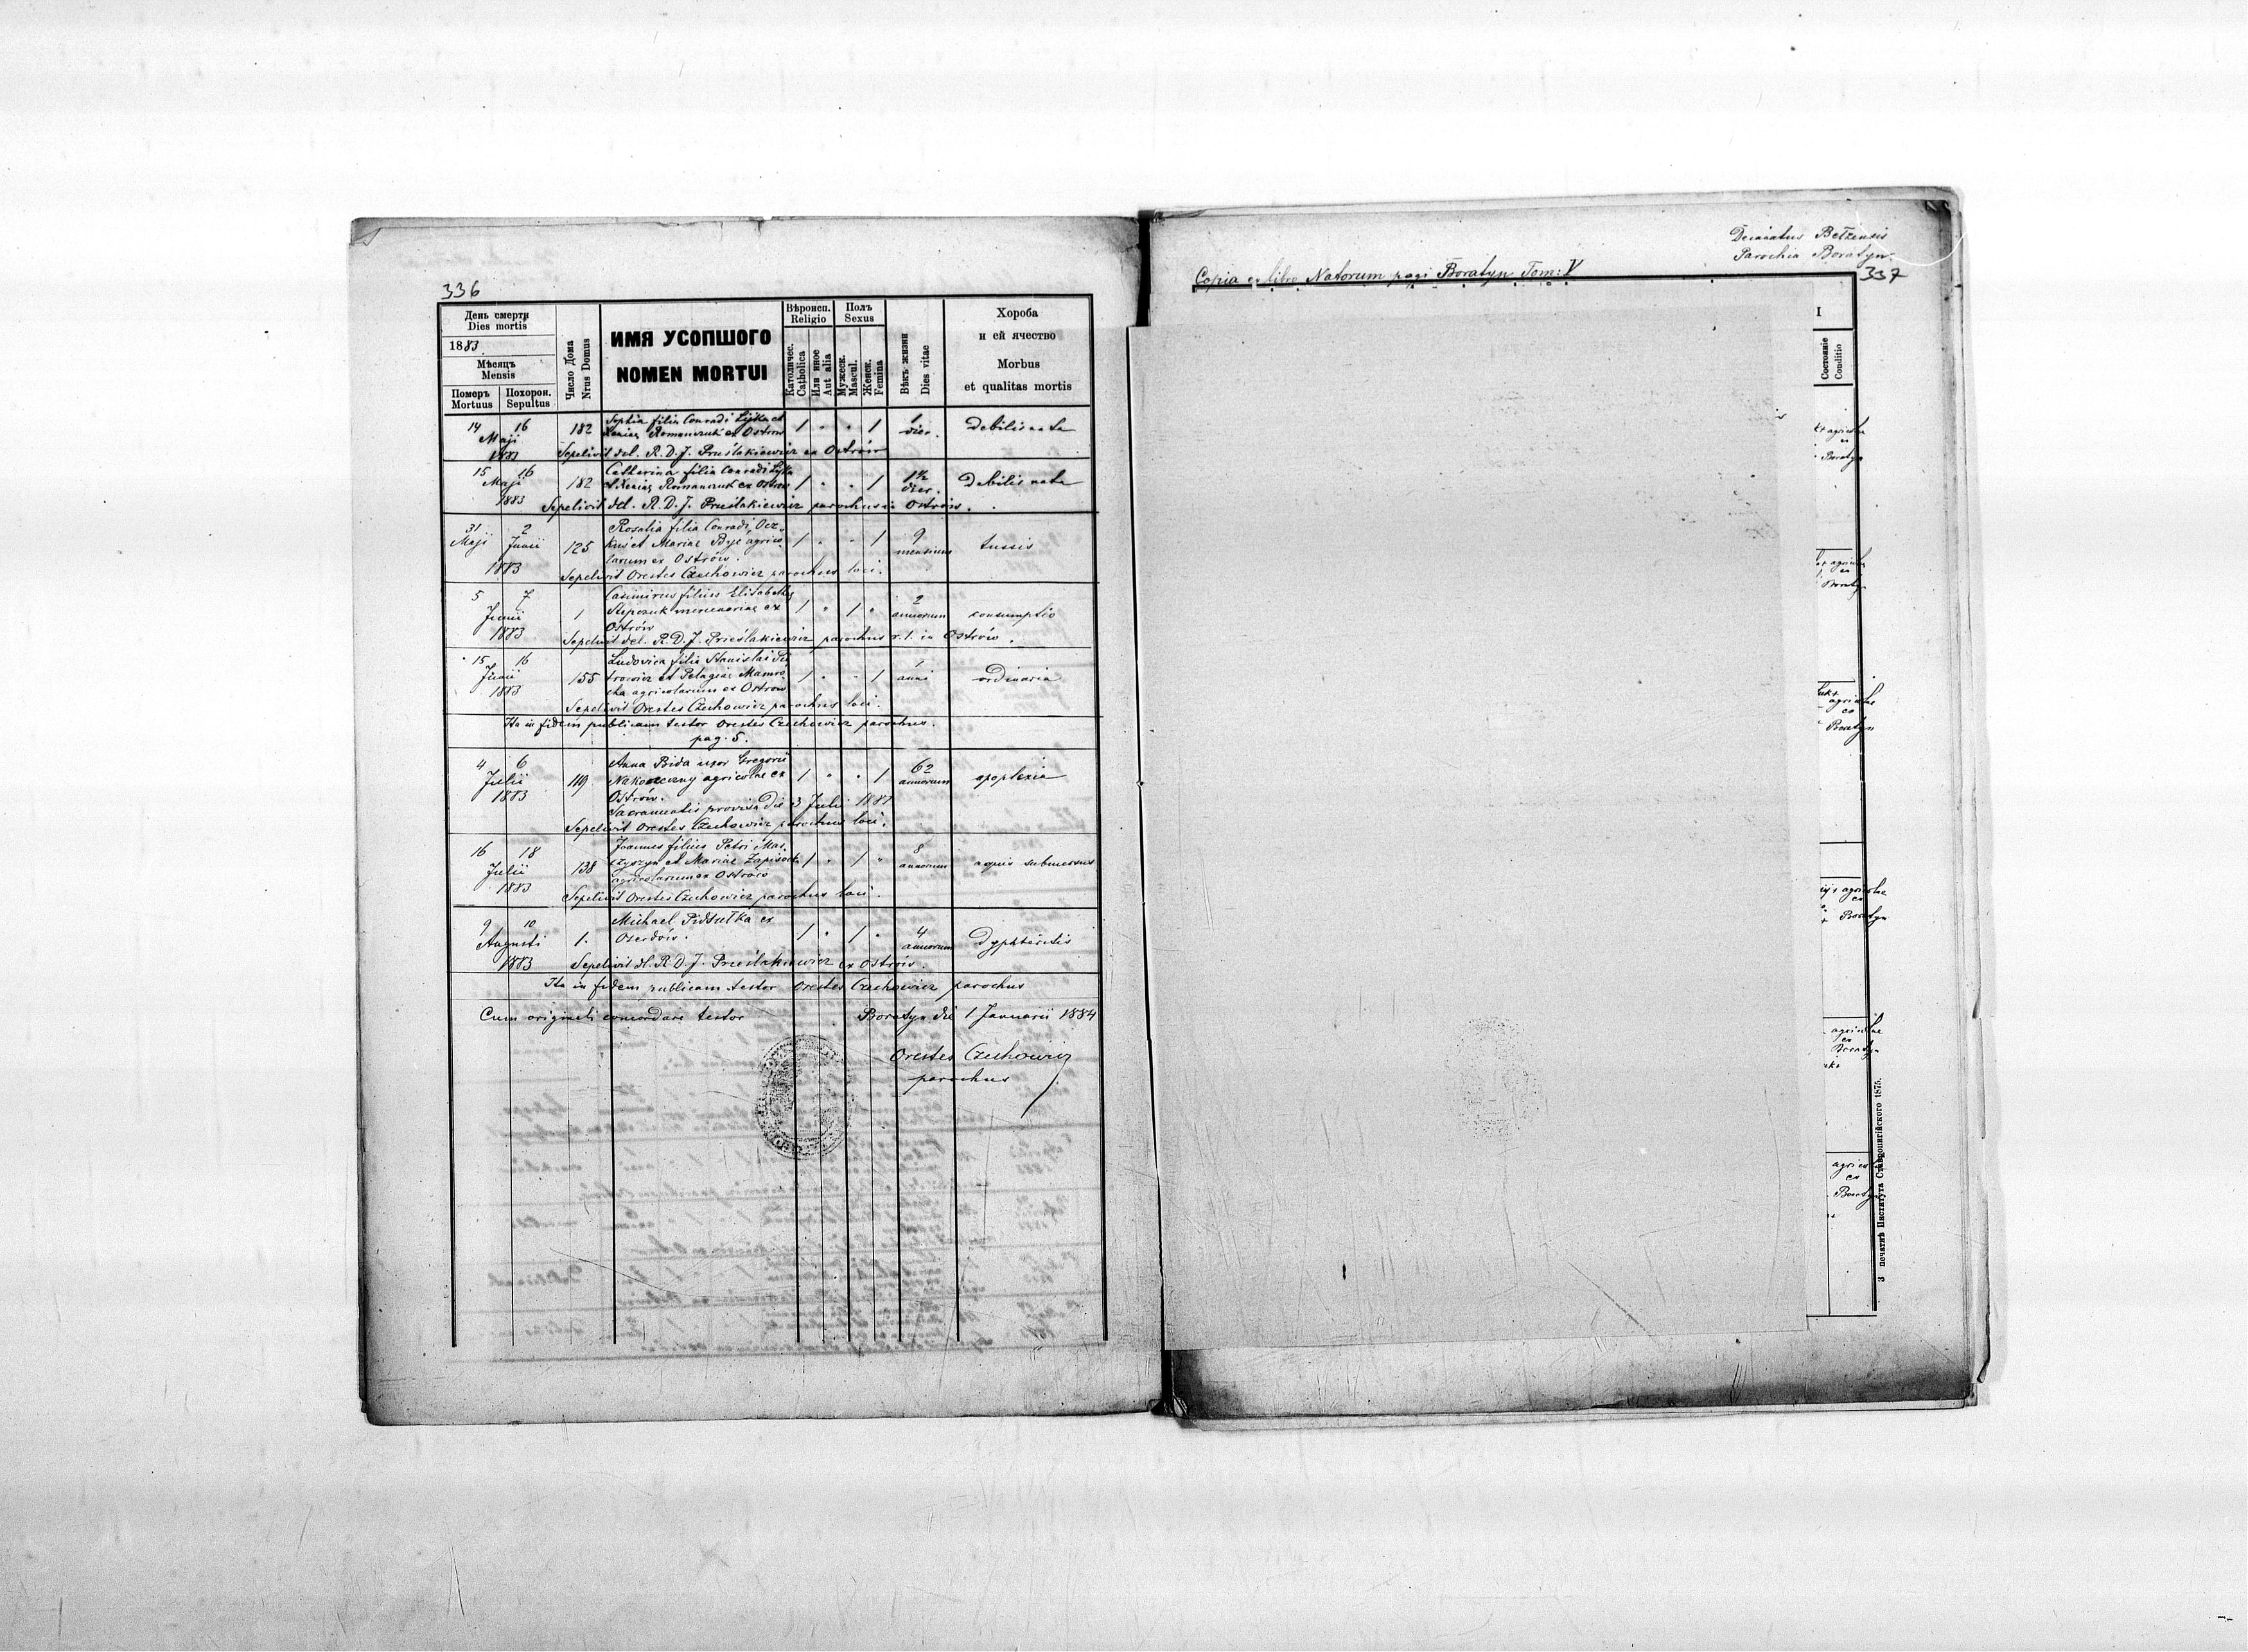 336
День смерти
Dies mortis
1883
Мѣсяць
Mensis
Померъ
Mortuus
Похорон.
Sepultus
Число Дома
Nrus Domus
ИМЯ УСОПШОГО
NOMEN MORTUI
Вѣроисп.
Religio
Католичес.
Catholica
Или иное
Aut alia
Полъ
Sexus
Мужеск.
Mascul.
Женск.
Femina
Вѣкъ жизни
Dies vitae
Хороба
и ей ячество
Morbus
et qualitas mortis
14 16
Maji
1883
182
Sophia filia Conradi et
Xeniae Romanczuk ex Ostrow
1 " " 1
1
dier.
Debilis nata
Sepelivit del. R. D. J. Prieślakiewicz ex Ostrów
15 16
Maji
1883
182
Catharina filia Conradi
et Xeniae Romanczuk ex Ostrow
1 " " 1
1½
dier.
Debilis nata
Sepelivit del. R. D. J. Prieślakiewicz parochus in Ostrów.
31 2
Maji Junii
1883
125
Rosalia filia Conradi
et Mariae agrico-
larum ex Ostrów.
1 " " 1
9
mensium
tussis
Sepelivit Orestes Czechowicz parochus loci.
5 7
Junii
1883
1
Casimirus filius Elisabethae
mercenariae ex
Ostrów
1 " 1 "
2
annorum
consumptio
Sepelivit del. R. D. J. Prieślakiewicz parochus r. l. in Ostrów.
15 16
Junii
1883
155
Ludovica filia Stanislai
et Pelagiae
agricolarum ex Ostrow
1 " " 1
anni
ordinaria
Sepelivit Orestes Czechowicz parochus loci.
Ita in fidem publicam testor Orestes Czechowicz parochus.
pag. 5.
4 6
Julii
1883
119
Anna Bida uxor Gregorii
Nakoneczny agricolae ex
Ostrów.
1 " " 1
62
annorum
apoplexia
Sacramentis provisa die 3 Julii 1883
Sepelivit Orestes Czechowicz parochus loci.
16 18
Julii
1883
138
Joannes filius Petri Mas-
et Mariae
agricolarum ex Ostrów
1 " 1 "
8
annorum
aquis submersus
Sepelivit Orestes Czechowicz parochus loci.
9 10
Augusti
1883
1.
Michael Pidsutka ex
Oserdów.
1 " 1 "
4
annorum
Dyphteritis
Sepelivit del. R. D. J. Prieślakiewicz ex Ostrów.
Ita in fidem publicam testor Orestes Czechowicz parochus
Cum originali concordare testor
Boratyn die 1 Januarii 1884
Orestes Czechowicz
parochus
Decanatus Bełzensis
Parochia Boratyn.
Copia ex libro Natorum pagi Boratyn Tom: V
337
I
Состояніе
Conditio
agricolae
ex
Boratyn
agricolae
ex
Boratyn
agricolae
ex
Boratyn
agricolae
ex
Boratyn
agricolae
ex
Boratyn
agricolae
ex
Boratyn
З печатнѣ Института Ставропигійского 1875.